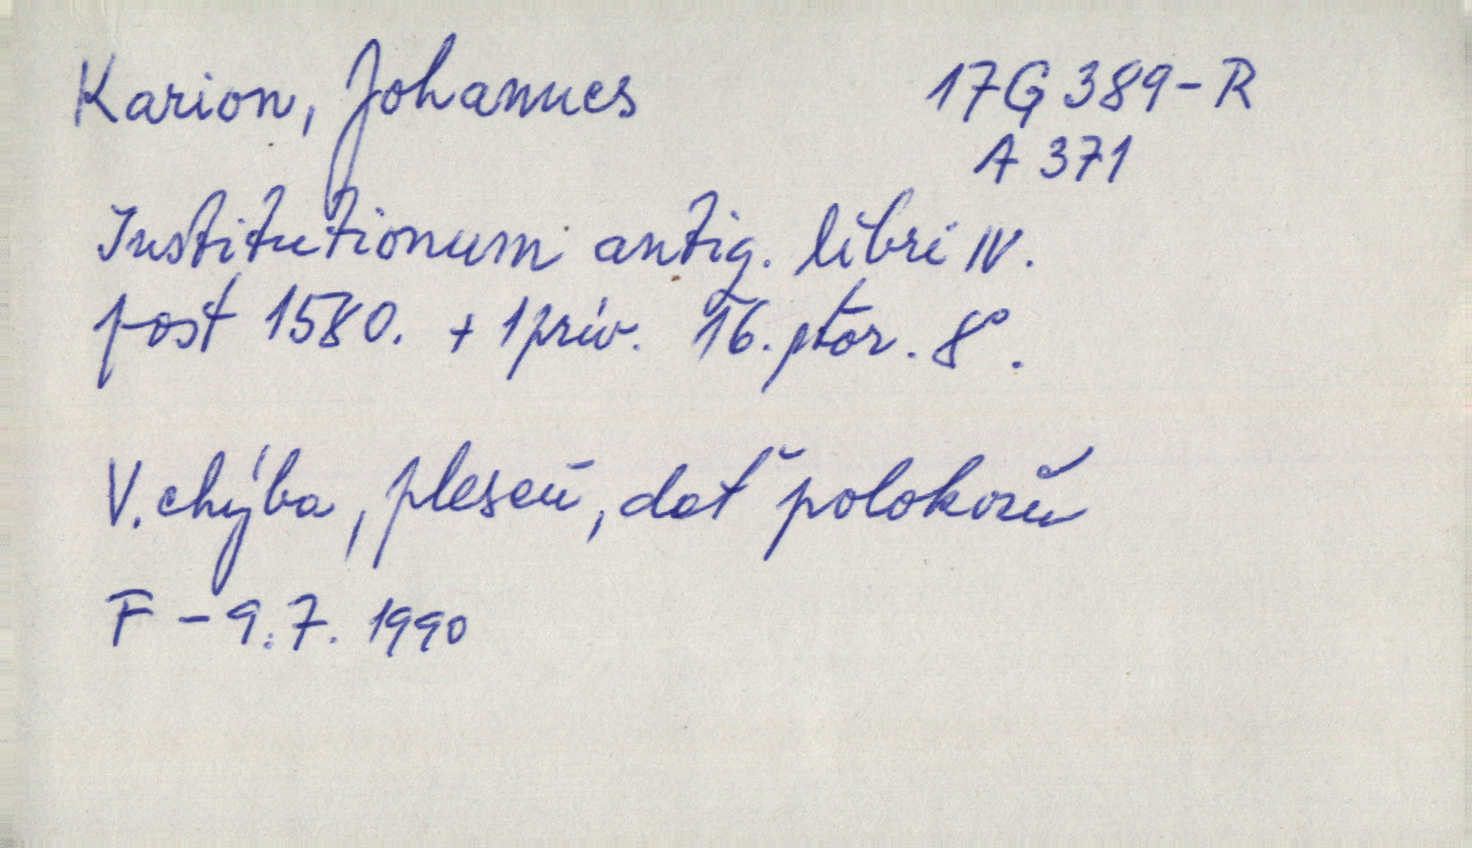 Karion, Johannes 17G 389-R
A 371
Institutionum antiq. libri IV.
post 1580. + 1 priv. 16. stor. 8°.
V. chýba, pleseň, dať polokožu
F - 9.7. 1990